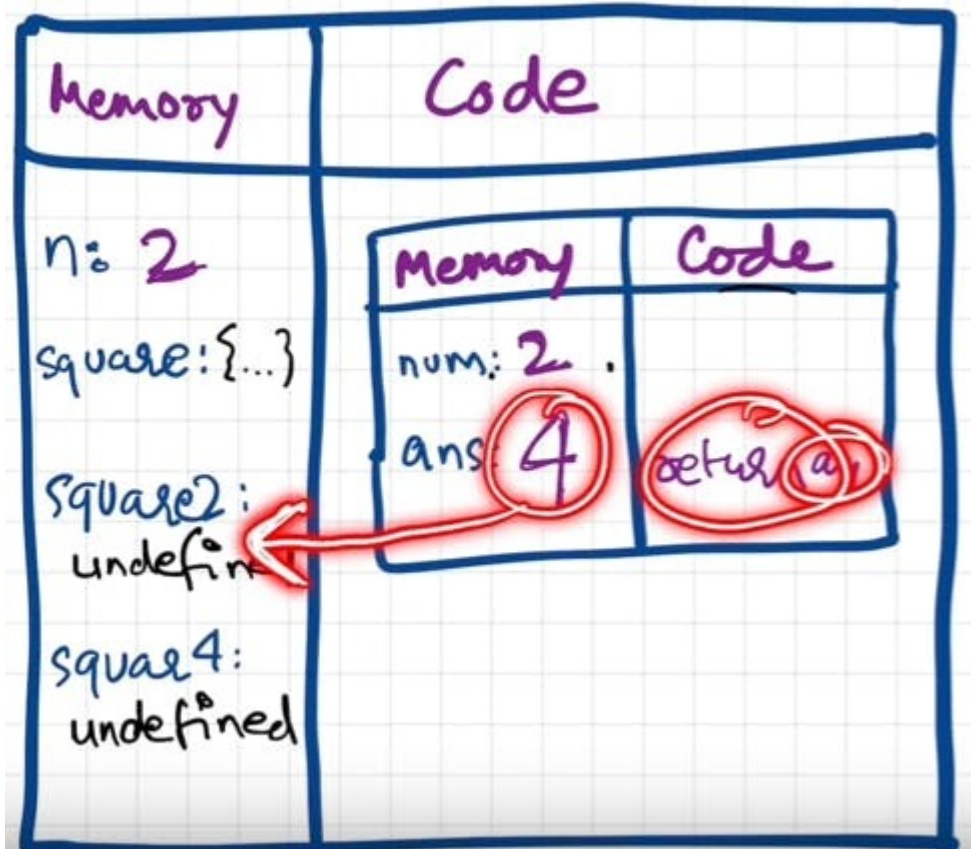 Memory
Code
n: 2
square: {...}
square2:
undefin
squar4:
undefined
Memory
Code
num: 2
ans: 4
return an